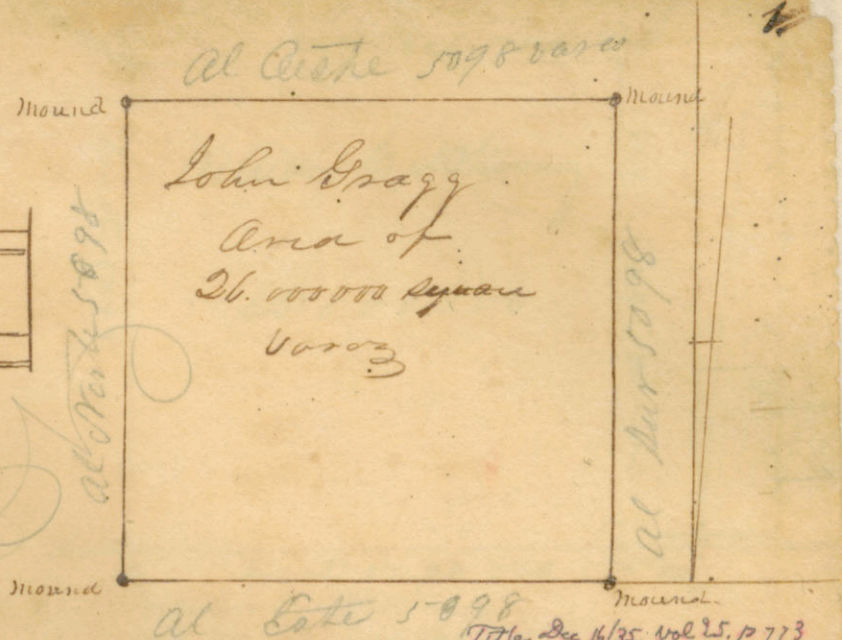 al Oeste 5098 varas
Mound
Mound
John Gragg
Area of
26.000000 square
varas
al Norte 5098
al Sur 5098
Mound
Mound.
al Este 5098
Title, Dec 16/35. Vol 25. p 773